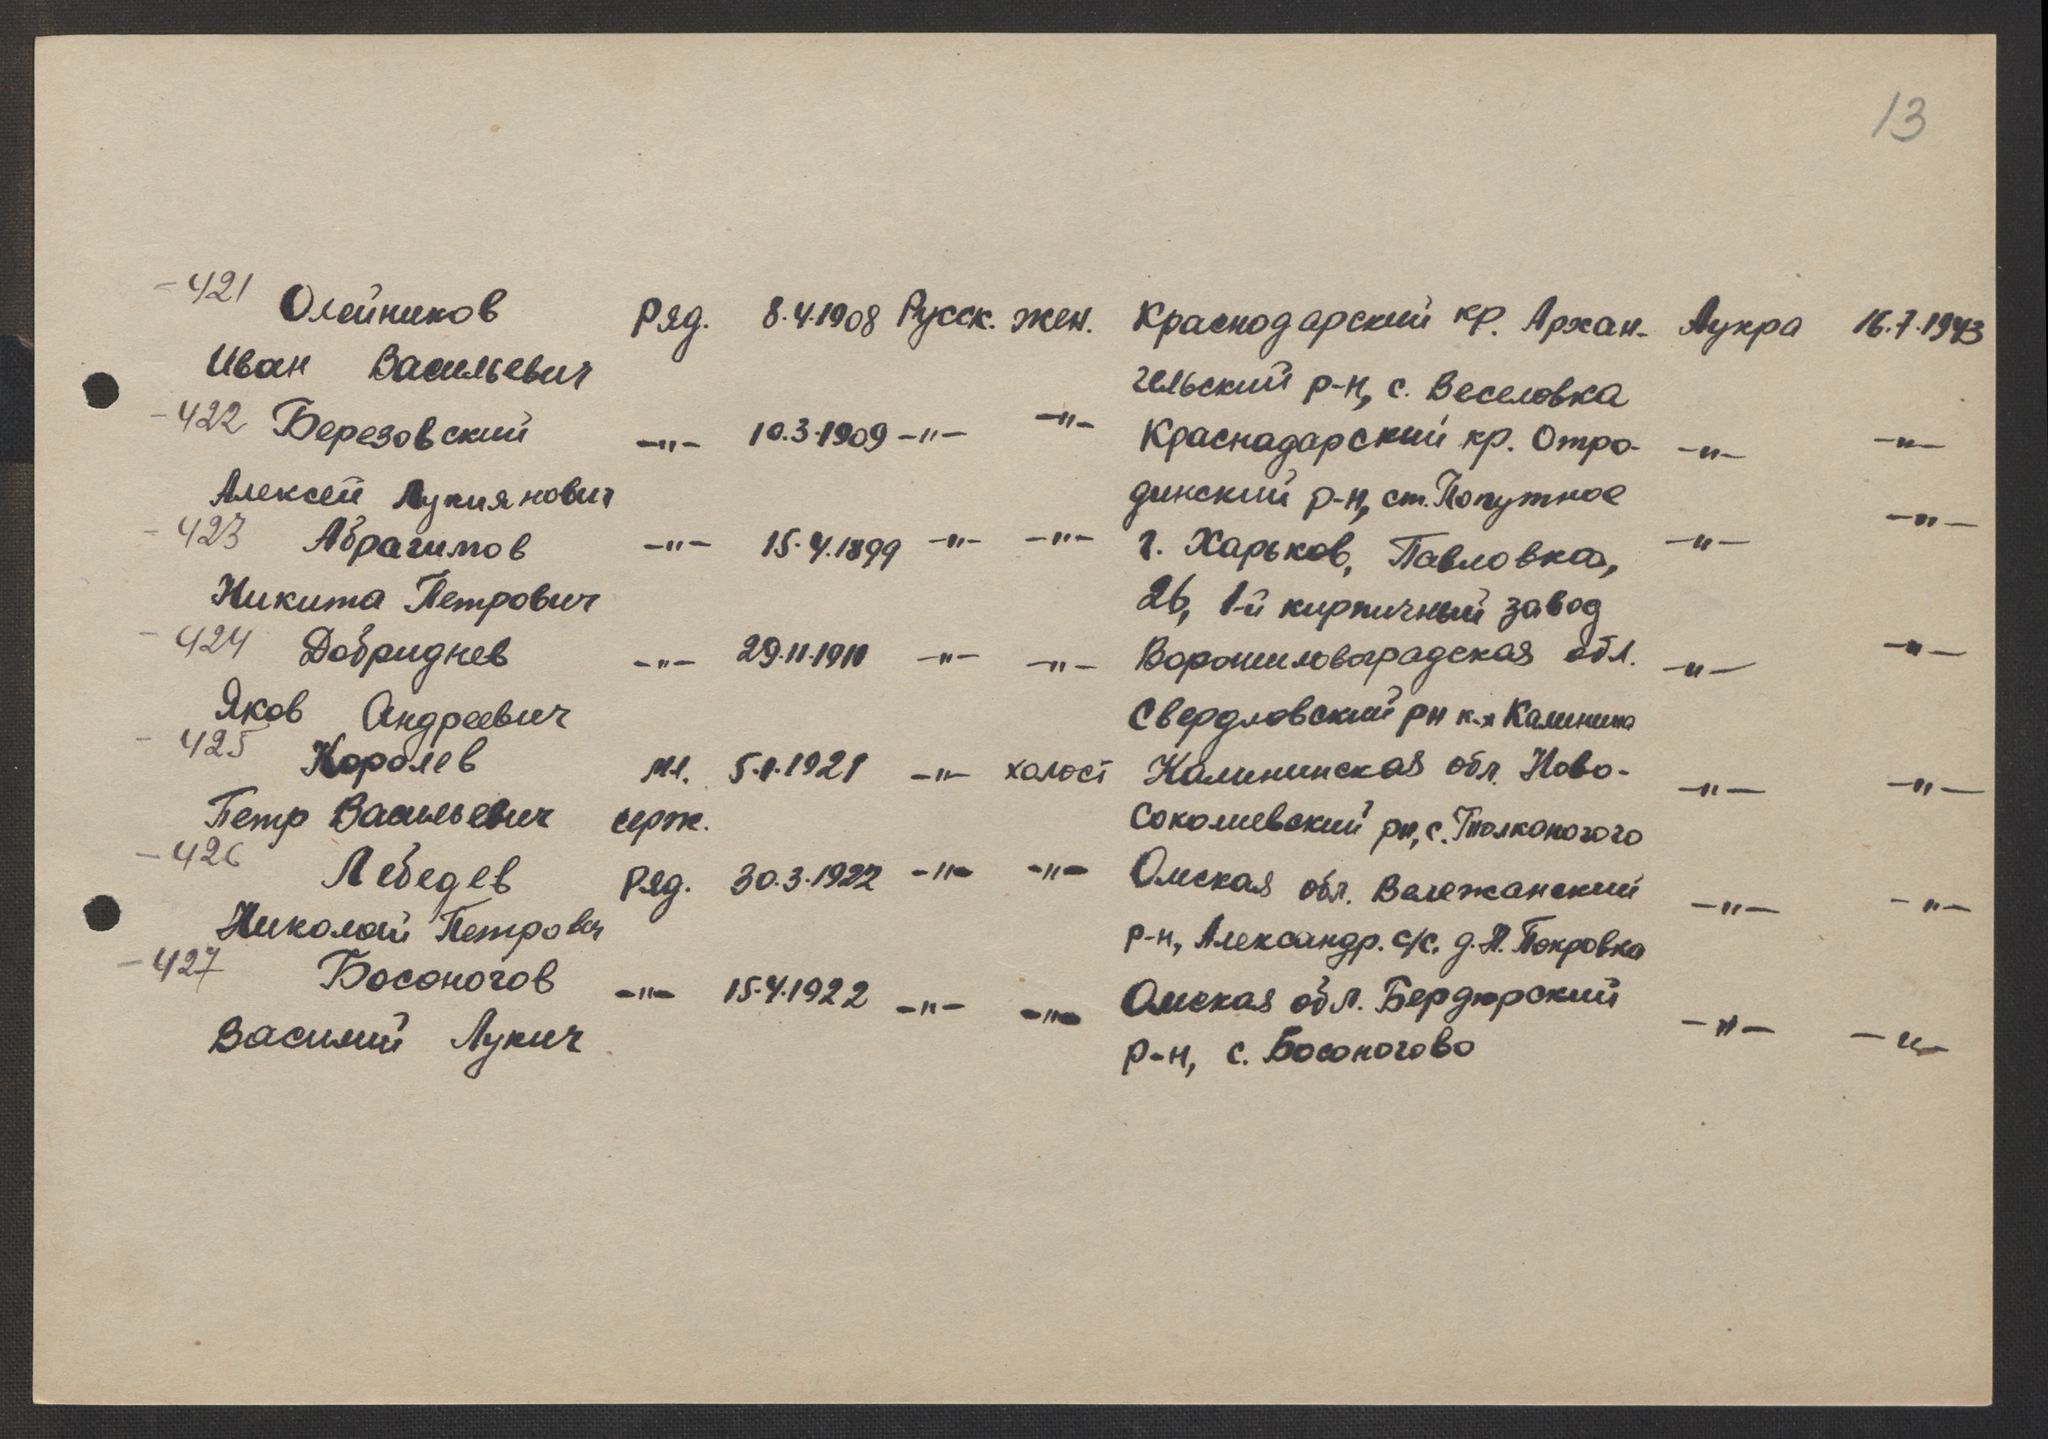 13
-421 Олейников Ряд. 8.4.1908 Русск. жен. Краснодарский кр. Архан- Лукра 16.7.1943
Иван Васильевич гельский р-н, с. Веселовка
-422 Березовский -"- 10.3.1909 -"- -"- Краснадарский кр. Отро- -"- -"-
Алексей Лукиянович динский р-н, ст. Попутное
-423 Абрагимов -"- 15.4.1899 -"- -"- г. Харьков, Павловка, -"- -"-
Никита Петрович 26, 1-й кирпичный завод
-424 Добриднев -"- 29.11.1911 -"- -"- Ворошиловоградская обл. -"- -"-
Яков Андреевич Свердловский рн к-з Калинина
-425 Королев мл. 5.1.1921 -"- холост Калининская обл. Ново- -"- -"-
Петр Васильевич серж. Соколиевский рн, с.
-426 Лебедев Ряд. 30.3.1922 -"- -"- Омская обл. Вележанский -"- -"-
Николай Петрович р-н, Александр. с/с. д. П. Покровка
-427 Босоногов -"- 15.4.1922 -"- -"- Омская обл. Бердюрский -"- -"-
Василий Лукич р-н, с. Босоногово